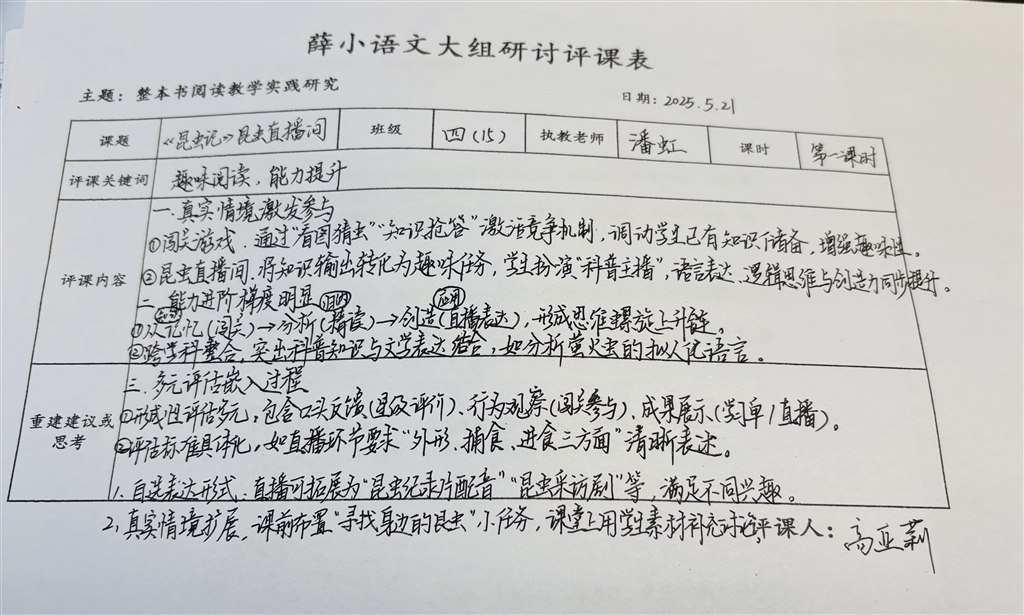 薛小语文大组研讨评课表
主题：整本书阅读教学实践研究
日期：2025.5.21
课题 《昆虫记》昆虫直播间 班级 四(15) 执教老师 潘虹 课时 第一课时
评课关键词 趣味阅读，能力提升
评课内容
一.真实情境激发参与
①闯关游戏.通过“看图猜虫”“知识抢答”激活竞争机制，调动学生已有知识储备，增强趣味性。
②昆虫直播间，将知识输出转化为趣味任务，学生扮演“科普主播”，语言表达、逻辑思维与创造力同步提升。
二.能力进阶梯度明显
①从记忆(闯关)→分析(精读)→创造(直播表达)，形成思维螺旋上升链。
②跨学科整合，突出科普知识与文学表达结合，如分析萤火虫的拟人化语言。
重建建议或思考
三.多元评估嵌入过程
①形成性评估多元，包含口头反馈(星级评价)、行为观察(闯关参与)、成果展示(学习单/直播)。
②评估标准具体化，如直播环节要求“外形、捕食、进食三方面”清晰表达。
1.自选表达形式.直播可拓展为“昆虫纪录片配音”“昆虫采访剧”等，满足不同兴趣。
2.真实情境扩展，课前布置“寻找身边的昆虫”小任务，课堂上用学生素材补充讨论
评课人：高亚莉